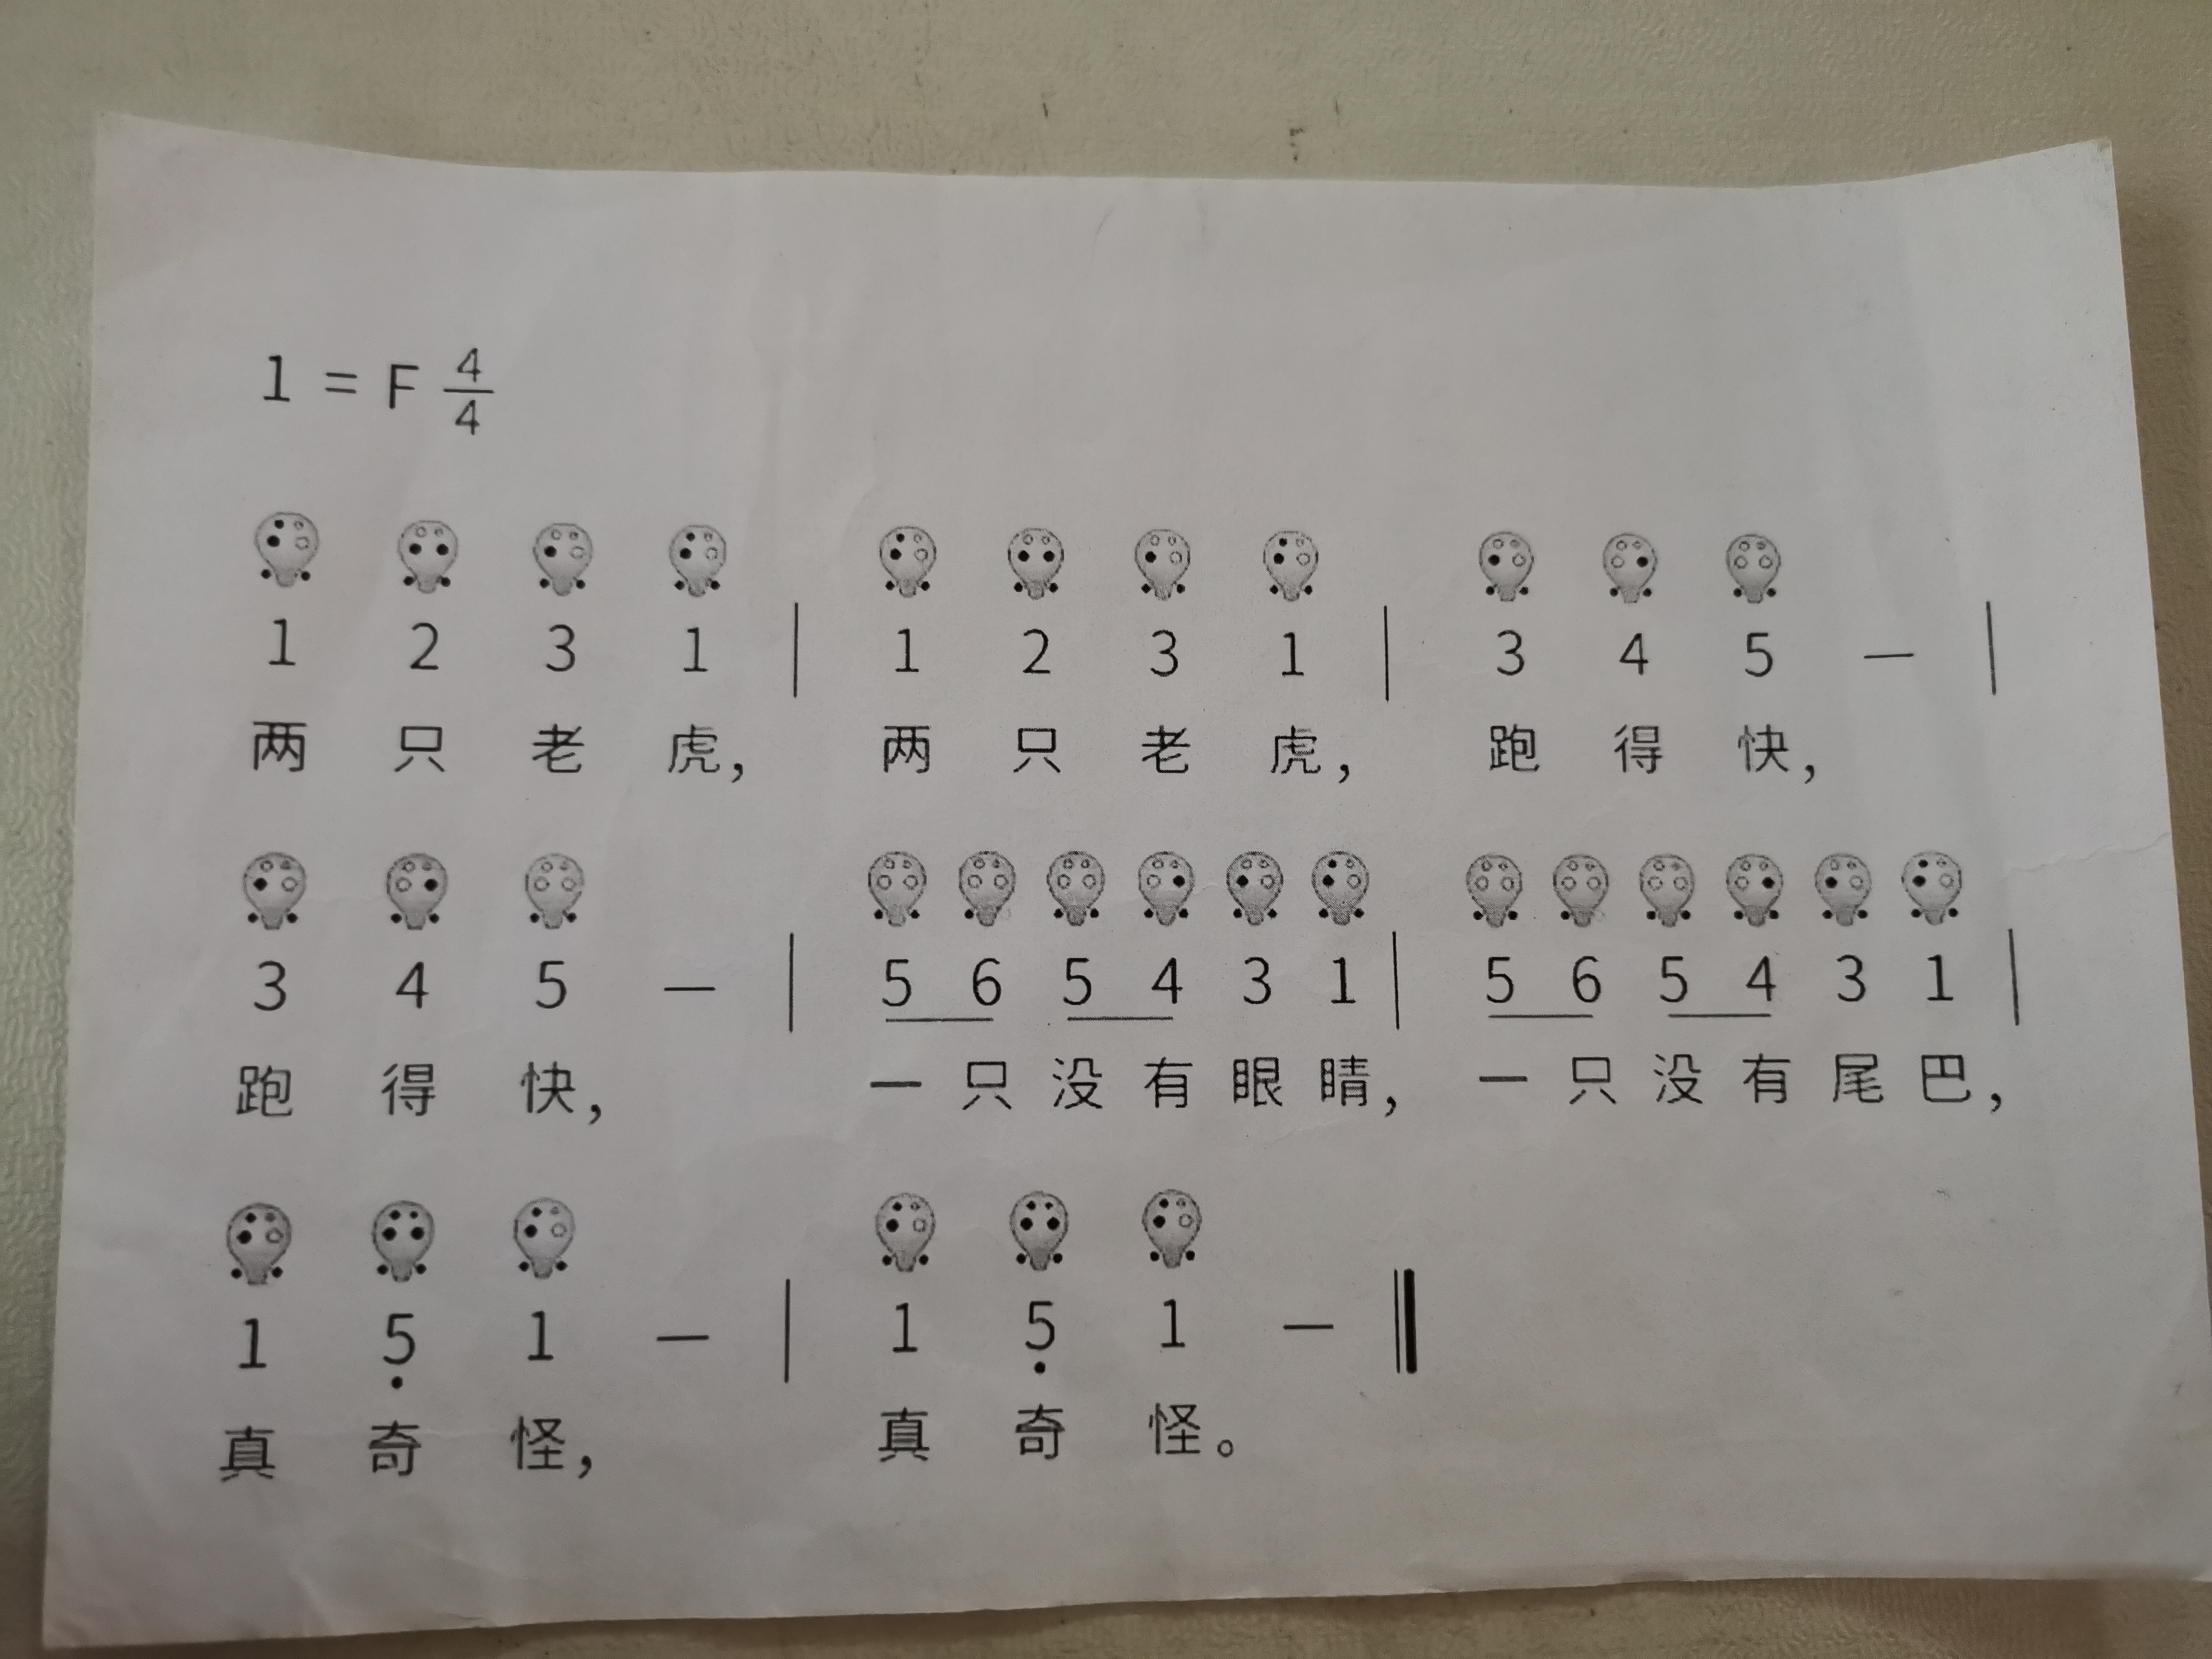 1 = F 4/4
1 2 3 1 | 1 2 3 1 | 3 4 5 — |
两 只 老 虎， 两 只 老 虎， 跑 得 快，
3 4 5 — | 5 6 5 4 3 1 | 5 6 5 4 3 1 |
跑 得 快， 一 只 没 有 眼 睛， 一 只 没 有 尾 巴，
1 5̣ 1 — | 1 5̣ 1 — ‖
真 奇 怪， 真 奇 怪。